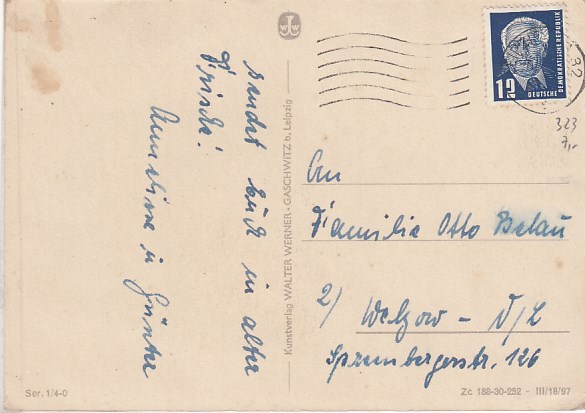 sendet Euch in alter
Frische!
Anneliese u. Günter
Kunstverlag WALTER WERNER · GASCHWITZ b. Leipzig
12
DEUTSCHE
DEMOKRATISCHE REPUBLIK
32
323
7,-
An
Familie Otto Belau
2) Welzow - N/L
Sprembergerstr. 126
Ser. 1/4-0
Zc 188-30-252 - III/18/97